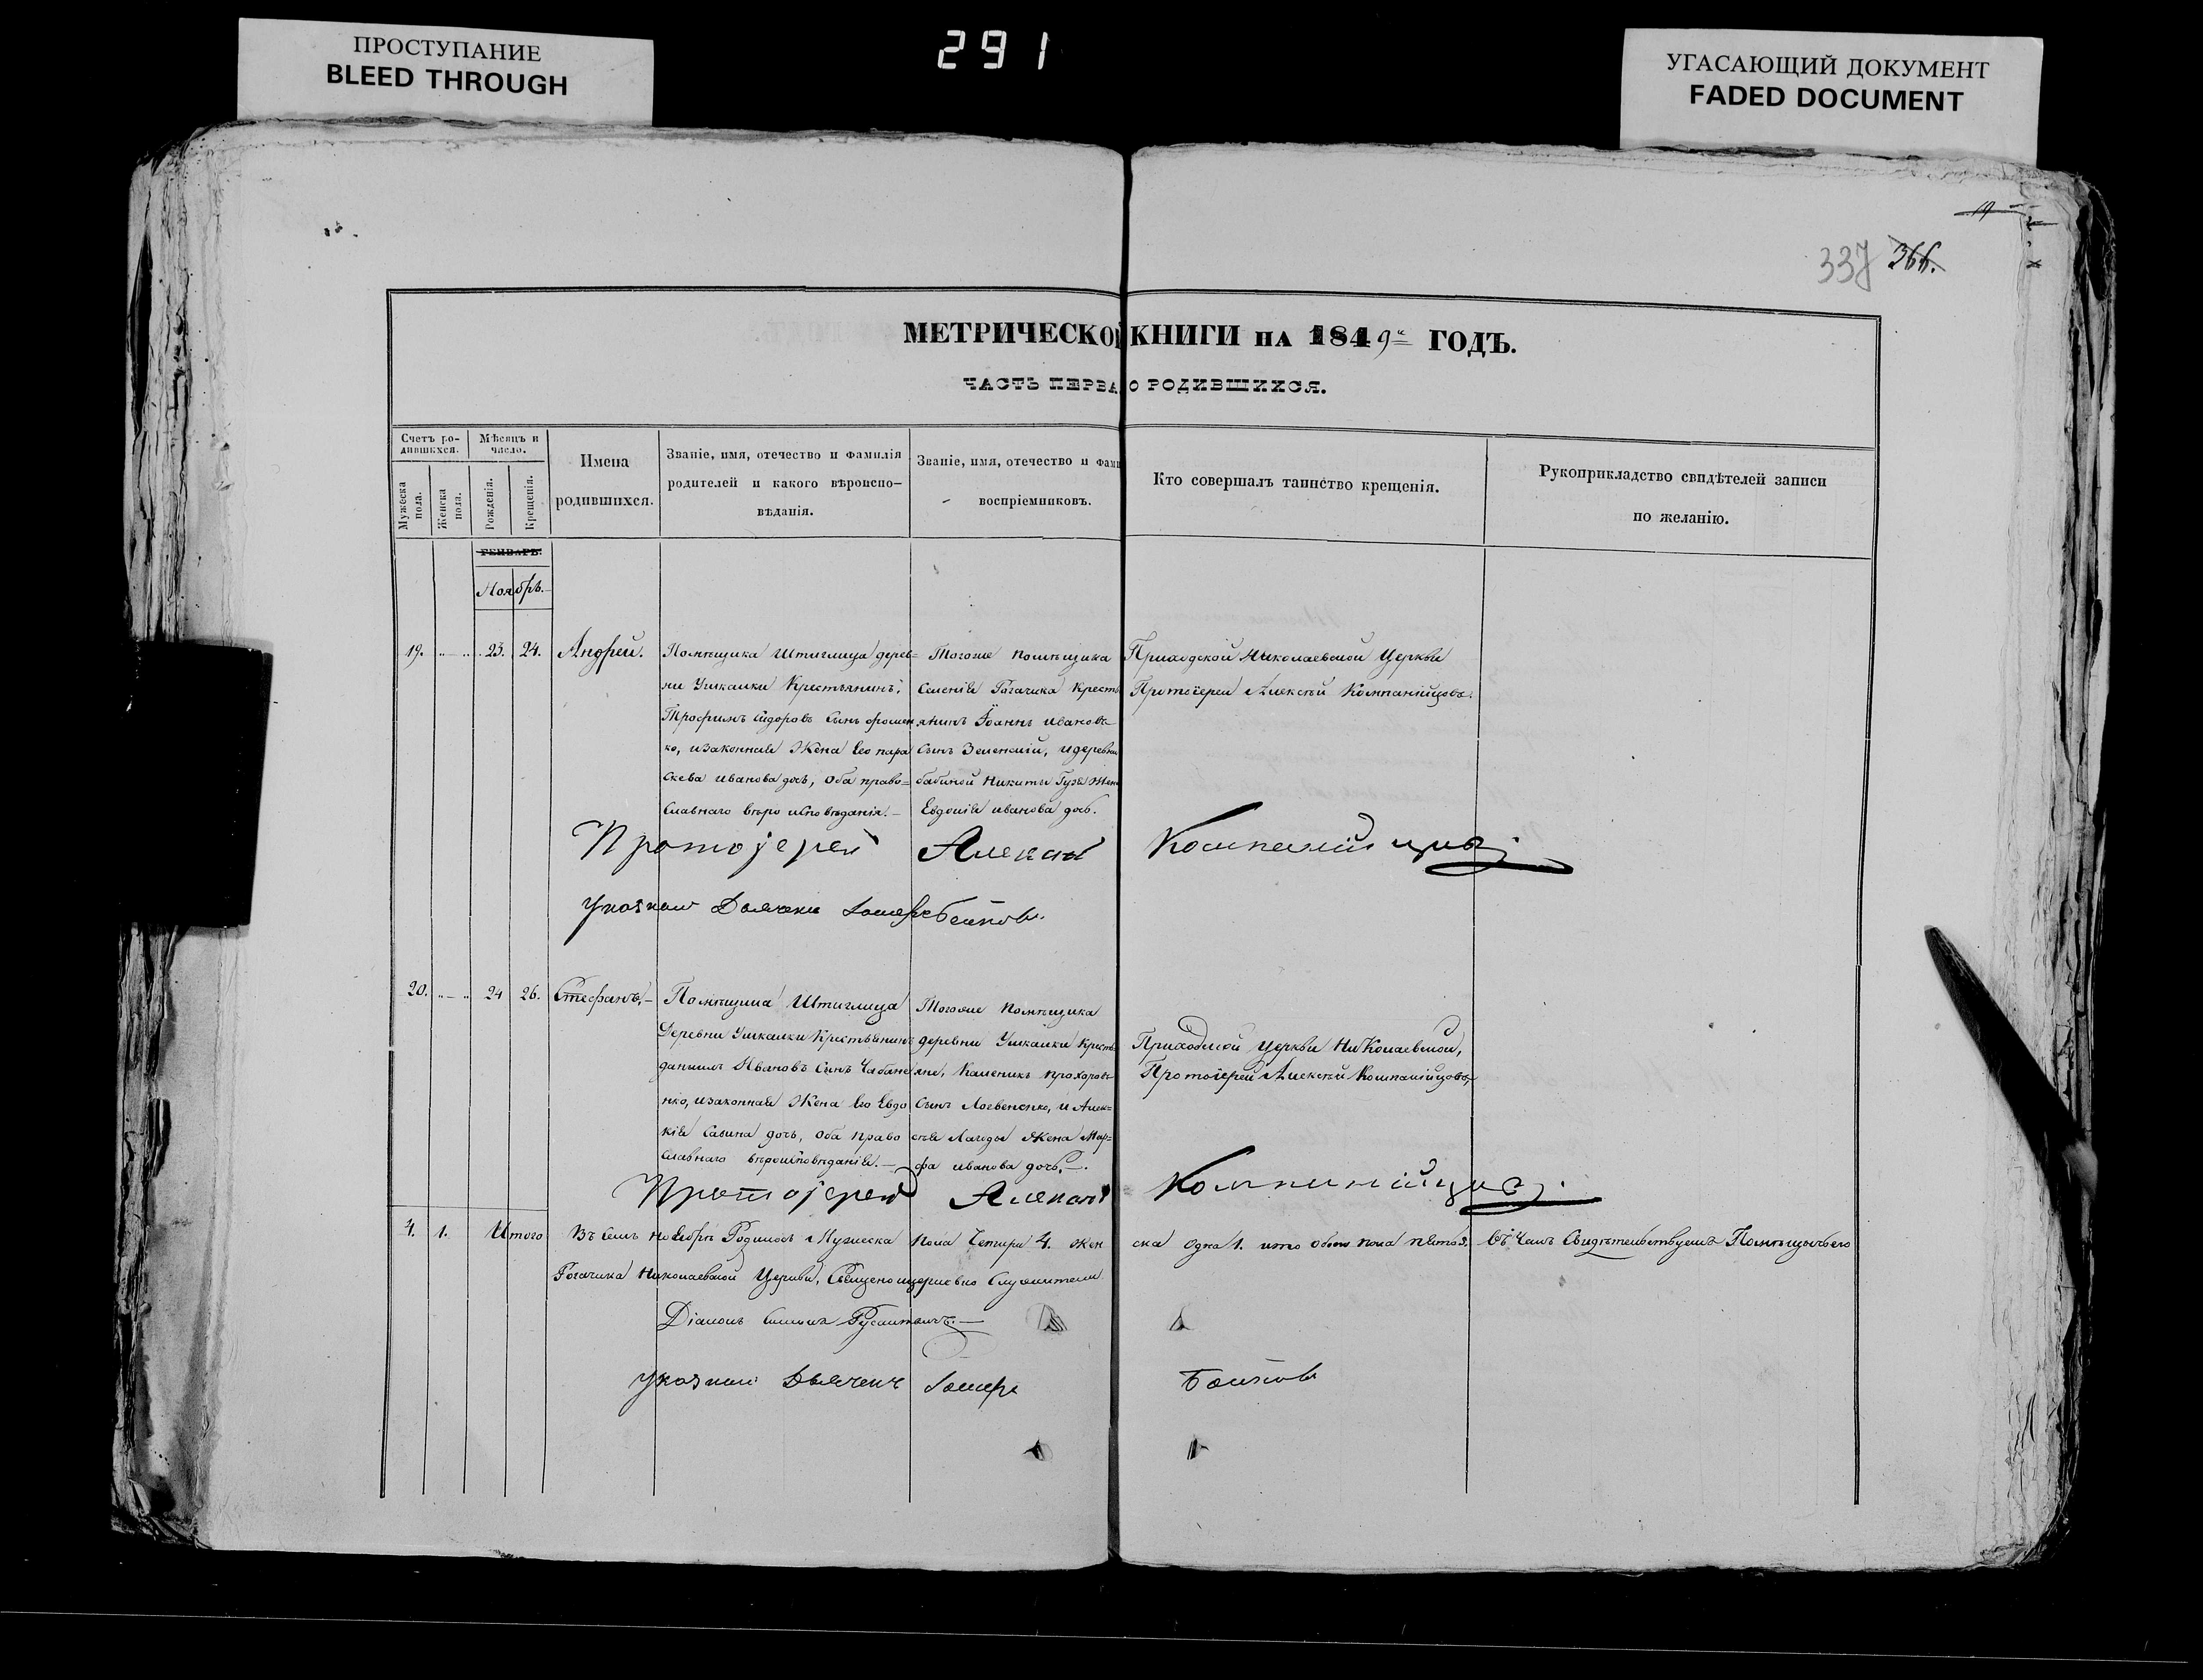 ПРОСТУПАНИЕ
BLEED THROUGH
291
УГАСАЮЩИЙ ДОКУМЕНТ
FADED DOCUMENT
19
337 366.
МЕТРИЧЕСКО КНИГИ НА 1849й ГОДЪ.
ЧАСТЬ ПЕРВА О РОДИВШИХСЯ.
Счетъ ро-
дившихся.
Мужеска пола.
Женска пола.
Мѣсяцъ и
число.
Рожденія.
Крещенія.
Имена
родившихся.
Званіе, имя, отечество и фамилія
родителей и какого вѣроиспо-
вѣданія.
Званіе, имя, отечество и фами
воспріемниковъ.
Кто совершалъ таинство крещенія.
Рукоприкладство свидѣтелей записи
по желанію.
ГЕНВАРЬ.
Ноябрь.
19. 23. 24. Андрей.
Помѣщика Штиглица дерев=
ни Ушкалки Крестьянинъ,
Трофимъ Сидоровъ Сынъ
ко, изаконная Жена Его пара
скева иванова дочь, Оба право=
славнаго вѣро исповѣданія.—
Тогоже помѣщика
Селенія Рогачика Кресть
янинъ Іоаннъ ивановъ
Сынъ Зеленскій, идеревни
бабиной Никиты Гузя Жена
Евдокія иванова дочь.
Приходской Николаевской Церкви
Протоіерей Алексѣй Компанійцовъ.
Протоіерей Алексѣй Компанійцовъ
Указной Дьячокъ Бойков
20. 24 26. Стефанъ.—
Помѣщика Штиглица
Деревни Ушкалки Крестьянинъ
даниилъ Ивановъ Сынъ Чабане
нко, изаконная Жена Его Евдо
кія Савина дочь, Оба право
славнаго вѣроисповѣданія.—
Тогоже помѣщика
деревни Ушкалки Кресть
яне, Каленикъ прохоровъ
Сынъ, и Алек=
сѣя Лагоды Жена Мар=
фа иванова дочь.—
Приходской Церкви Николаевской,
Протоіерей Алексѣй Компанійцовъ
Протоіерей Алексѣй Компанійцовъ
4. 1. Итого Въ семъ ноябрѣ Родилось Мужеска пола Четыри 4. жен ска Одна 1. итого обоего пола пять 5. Въ Чемъ Свидѣтельствуемъ Помѣщичьего
Рогачика Николаевской Церкви, Священоицерковно Служители
Діаконъ
Указной Дьячокъ Бойков